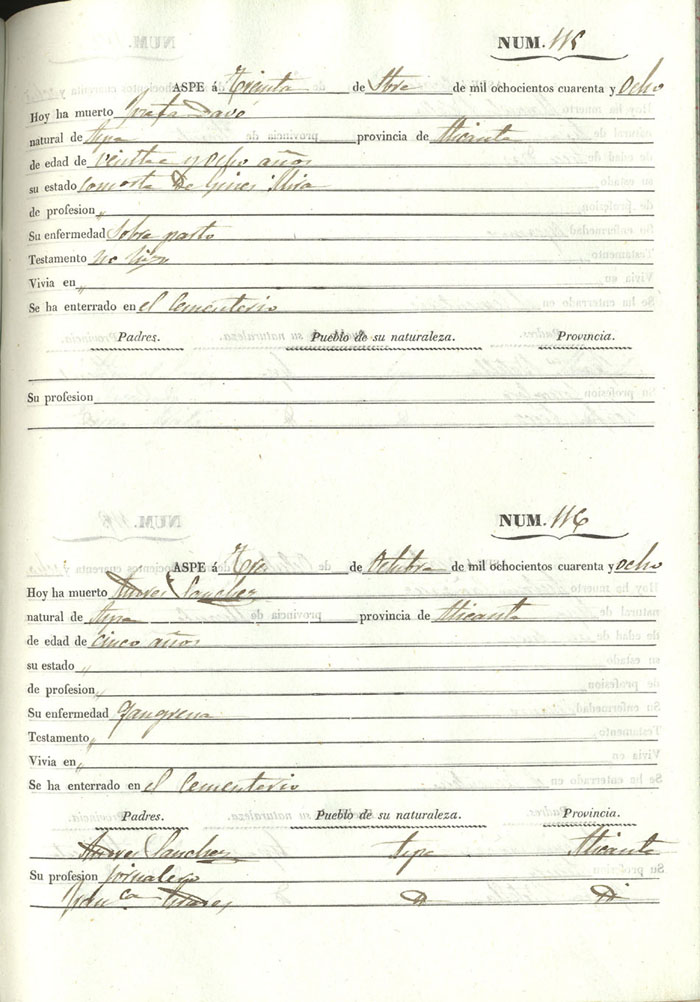 NUM. 115
ASPE á Treinta de 7bre de mil ochocientos cuarenta y Ocho
Hoy ha muerto Josefa Davó
natural de Aspe provincia de Alicante
de edad de veintte y ocho años
su estado Consorte De Gines Mira
de profesion "
Su enfermedad Sobre parto
Testamento no hizo
Vivia en "
Se ha enterrado en el Cementerio
Padres. Pueblo de su naturaleza. Provincia.
Su profesion
NUM. 116
ASPE á Tres de Octubre de mil ochocientos cuarenta y ocho
Hoy ha muerto Sanchez
natural de Aspe provincia de Alicante
de edad de Cinco años
su estado "
de profesion "
Su enfermedad Gangrena
Testamento "
Vivia en "
Se ha enterrado en el Cementerio
Padres. Pueblo de su naturaleza. Provincia.
Sanchez Aspe Alicante
Su profesion Jornalero
Franca